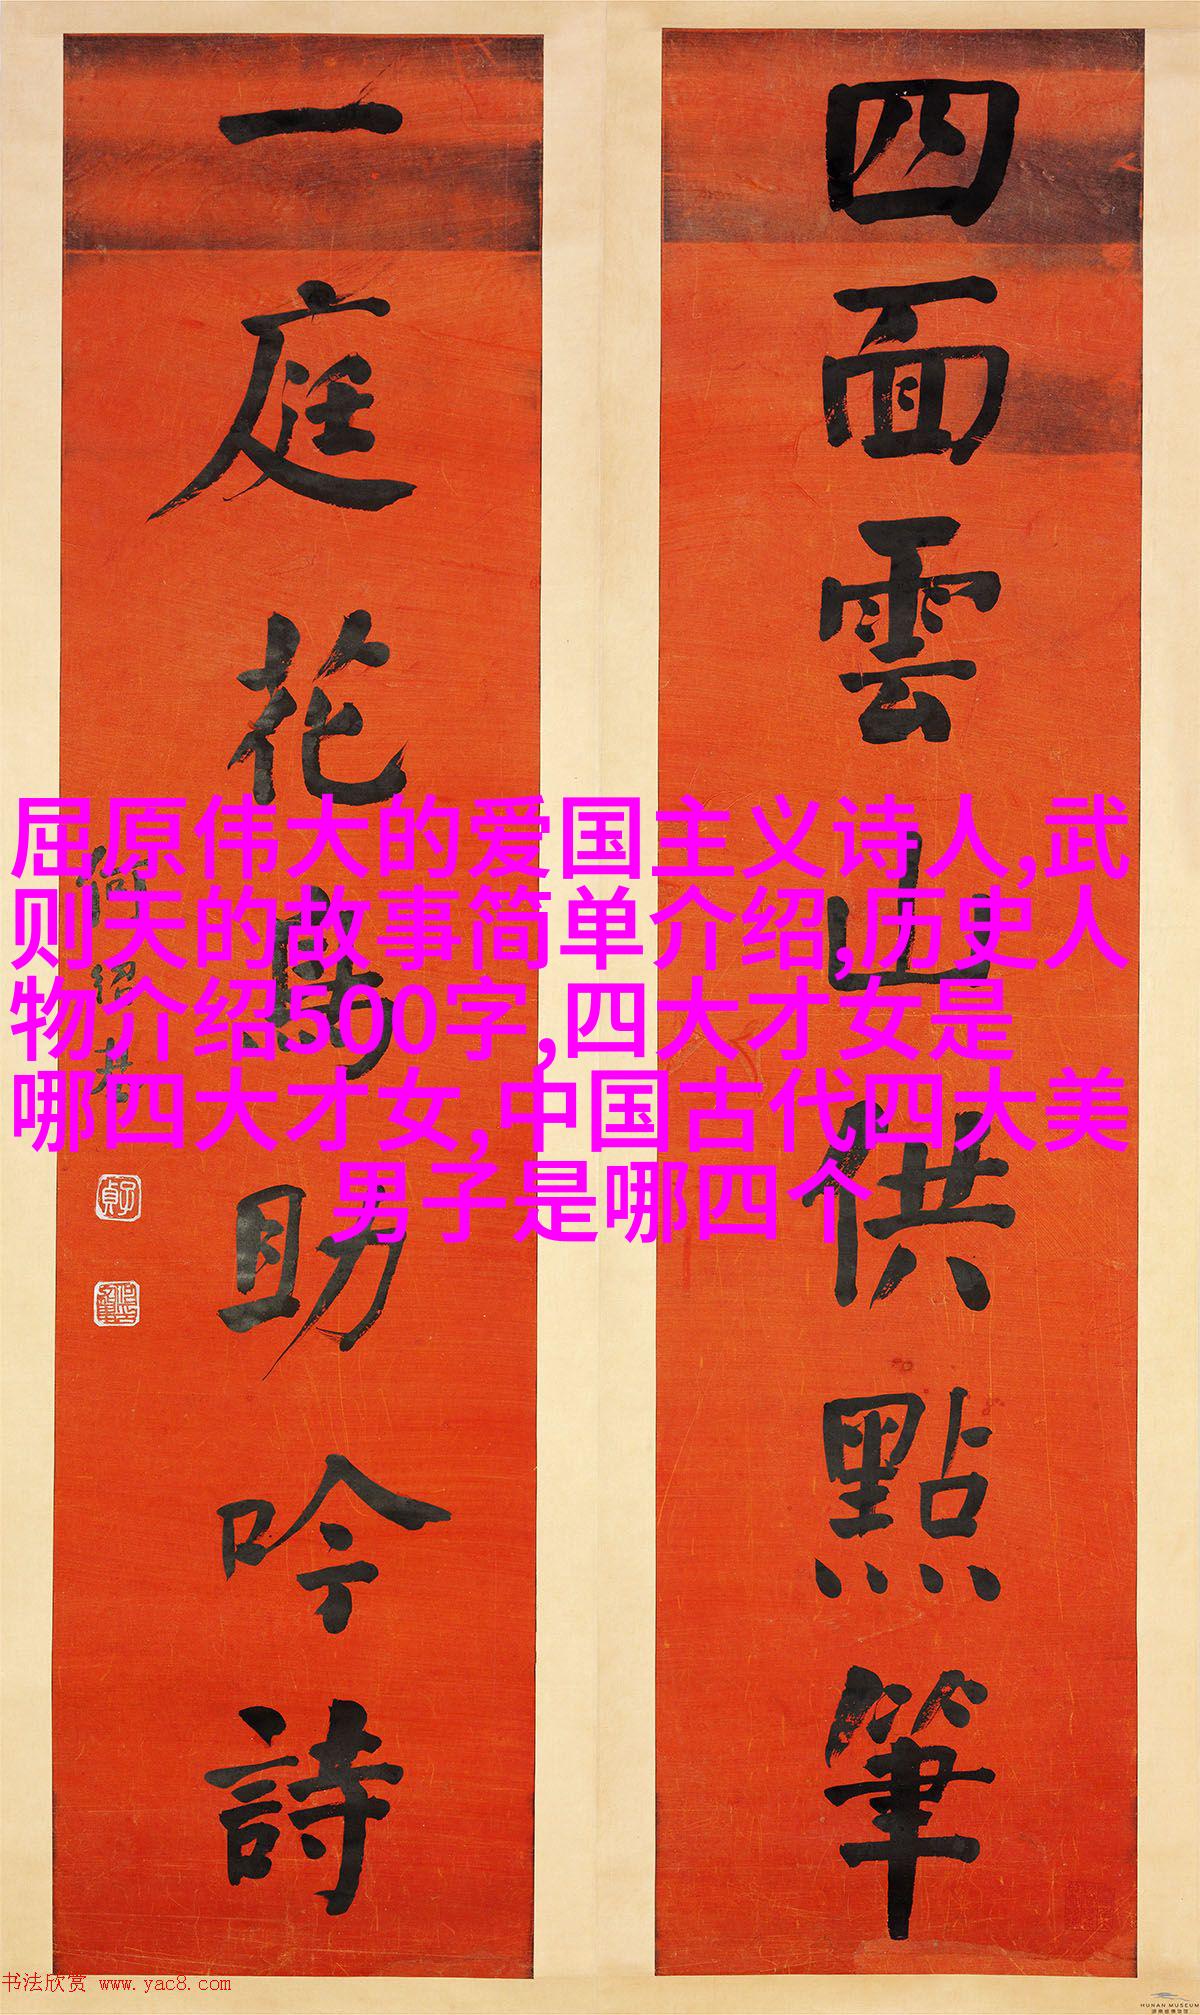 四面雲山供點筆
一庭花鳥助吟詩
何紹基
子貞
屈原伟大的爱国主义诗人,武
则天的故事简单介绍,历史人
物介绍500字,四大才女是
哪四大才女,中国古代四大美
男子是哪四个
书法欣赏 www.yac8.com
HUNAN MUSEUM
湖南省博物馆